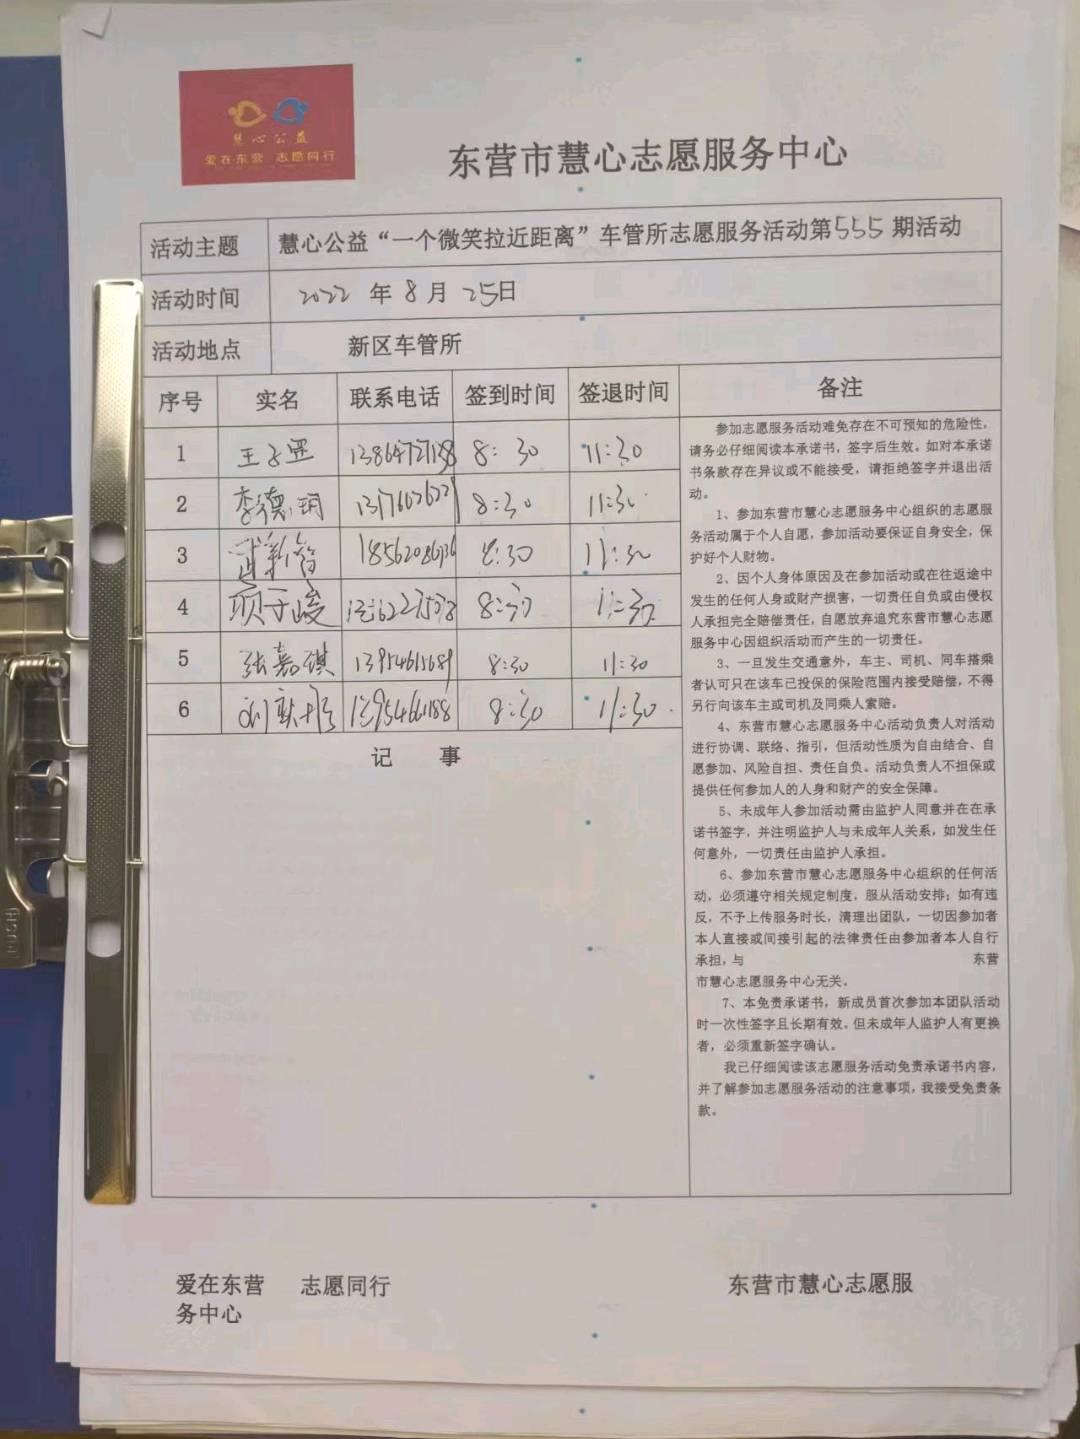 慧心公益
爱在东营 志愿同行
东营市慧心志愿服务中心
活动主题 慧心公益“一个微笑拉近距离”车管所志愿服务活动第555期活动
活动时间 2022 年 8 月 25日
活动地点 新区车管所
序号 实名 联系电话 签到时间 签退时间 备注
1 8:30 11:30
2 李德明 8:30 11:30
3 武新智 8:30 11:30
4 项子峻 8:30 11:30
5 张嘉祺 13954615689 8:30 11:30
6 13954661188 8:30 11:30
记 事
参加志愿服务活动难免存在不可预知的危险性,
请务必仔细阅读本承诺书,签字后生效。如对本承诺
书条款存在异议或不能接受,请拒绝签字并退出活
动。
1、参加东营市慧心志愿服务中心组织的志愿服
务活动属于个人自愿,参加活动要保证自身安全,保
护好个人财物。
2、因个人身体原因及在参加活动或在往返途中
发生的任何人身或财产损害,一切责任自负或由侵权
人承担完全赔偿责任,自愿放弃追究东营市慧心志愿
服务中心因组织活动而产生的一切责任。
3、一旦发生交通意外,车主、司机、同车搭乘
者认可只在该车已投保的保险范围内接受赔偿,不得
另行向该车主或司机及同乘人索赔。
4、东营市慧心志愿服务中心活动负责人对活动
进行协调、联络、指引,但活动性质为自由结合、自
愿参加、风险自担、责任自负。活动负责人不担保或
提供任何参加人的人身和财产的安全保障。
5、未成年人参加活动需由监护人同意并在在承
诺书签字,并注明监护人与未成年人关系,如发生任
何意外,一切责任由监护人承担。
6、参加东营市慧心志愿服务中心组织的任何活
动,必须遵守相关规定制度,服从活动安排;如有违
反,不予上传服务时长,清理出团队,一切因参加者
本人直接或间接引起的法律责任由参加者本人自行
承担,与 东营
市慧心志愿服务中心无关。
7、本免责承诺书,新成员首次参加本团队活动
时一次性签字且长期有效。但未成年人监护人有更换
者,必须重新签字确认。
我已仔细阅读该志愿服务活动免责承诺书内容,
并了解参加志愿服务活动的注意事项,我接受免责条
款。
爱在东营 志愿同行 东营市慧心志愿服
务中心